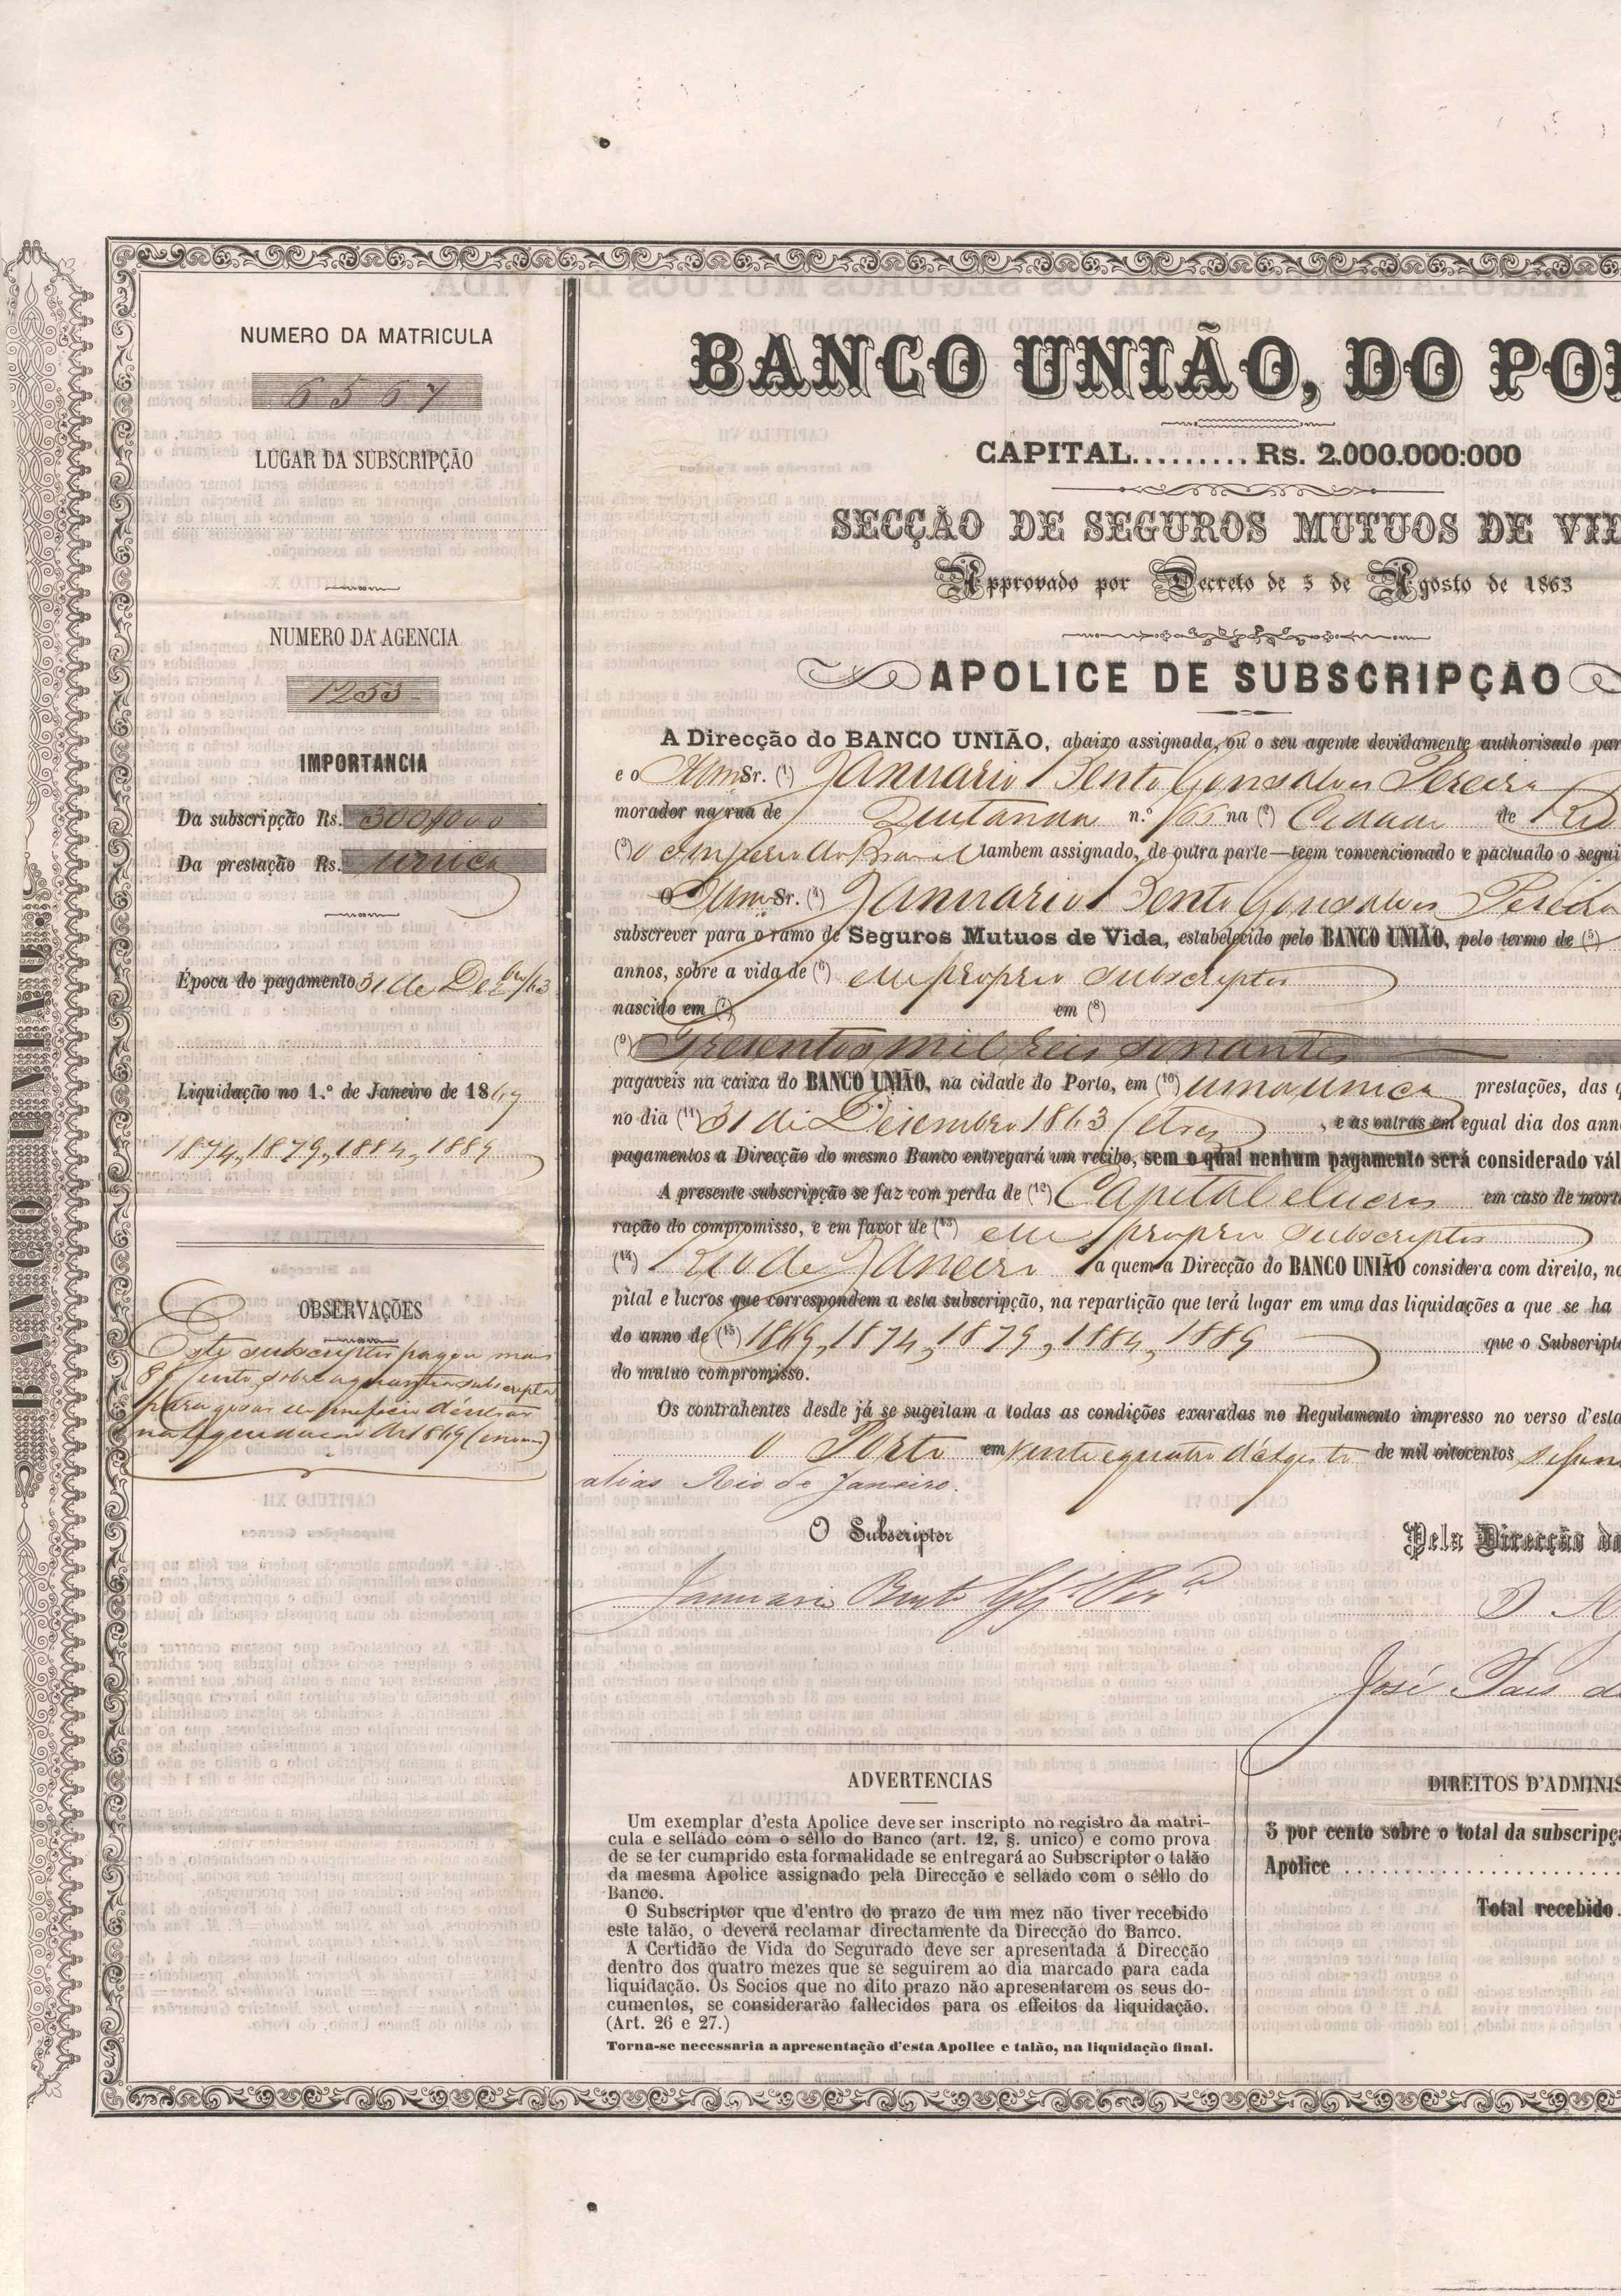 BANCO UNIÃO.
NUMERO DA MATRICULA
6567
LUGAR DA SUBSCRIPÇÃO
NUMERO DA AGENCIA
1253
IMPORTANCIA
Da subscripção Rs. 300$000
Da prestação Rs. unica
Época do pagamento 31 de Dezbro/63
Liquidação no 1.º de Janeiro de 1869
1874, 1879, 1884, 1889
OBSERVAÇÕES
Este subscriptor pagou mais
8 p% cento, sobre a quantia subscripta
para gosar do beneficio
na liquidacao de 1869
BANCO UNIÃO, DO POR
CAPITAL......... Rs. 2.000.000:000
SECÇÃO DE SEGUROS MUTUOS DE VID
Approvado por Decreto de 5 de Agosto de 1863
APOLICE DE SUBSCRIPÇÃO
A Direcção do BANCO UNIÃO, abaixo assignada, ou o seu agente devidamente authorisado par
e o Illmo Sr. (1) Januario Bento Gonsalves Pereira
morador na rua de Quitanda n.º 165 na (2) Cidade de Rio
(3) o imperio do Brasil tambem assignado, de outra parte—teem convencionado e pactuado o segui
O Illmo Sr. (4) Januario Bento Gonsalves Pereira
subscrever para o ramo de Seguros Mutuos de Vida, estabelecido pelo BANCO UNIÃO, pelo termo de (5)
annos, sobre a vida de (6) elle proprio subscriptor
nascido em (7) em (8)
(9) Tresentos mil reis sonantes
pagaveis na caixa do BANCO UNIÃO, na cidade do Porto, em (10) uma unica prestações, das q
no dia (11) 31 de Desembro 1863 (etres) , e as outras em egual dia dos ann
pagamentos a Direcção do mesmo Banco entregará um recibo, sem o qual nenhum pagamento será considerado vál
A presente subscripção se faz com perda de (12) Capital e lucros em caso de morte
ração do compromisso, e em favor de (13) elle proprio subscriptor
(14) Rio de Janeiro a quem a Direcção do BANCO UNIÃO considera com direito, no
pital e lucros que correspondem a esta subscripção, na repartição que terá logar em uma das liquidações a que se ha
do anno de (15) 1869, 1874, 1879, 1884, 1889 que o Subscripto
do mutuo compromisso.
Os contrahentes desde já se sugeitam a todas as condições exaradas no Regulamento impresso no verso d'esta
o Porto em vinte e quatro d'Agosto de mil oitocentos
alias Rio de Janeiro.
O Subscriptor
Pela Direcção do
Januario Bento Glz Perª
José Pais d
ADVERTENCIAS
Um exemplar d'esta Apolice deve ser inscripto no registro da matri-
cula e sellado com o sêllo do Banco (art. 12, §. unico) e como prova
de se ter cumprido esta formalidade se entregará ao Subscriptor o talão
da mesma Apolice assignado pela Direcção e sellado com o sêllo do
Banco.
O Subscriptor que d'entro do prazo de um mez não tiver recebido
este talão, o deverá reclamar directamente da Direcção do Banco.
A Certidão de Vida do Segurado deve ser apresentada á Direcção
dentro dos quatro mezes que se seguirem ao dia marcado para cada
liquidação. Os Socios que no dito prazo não apresentarem os seus do-
cumentos, se considerarão fallecidos para os effeitos da liquidação.
(Art. 26 e 27.)
Torna-se necessaria a apresentação d'esta Apolice e talão, na liquidação final.
DIREITOS D'ADMINIS
5 por cento sobre o total da subscripçã
Apolice
Total recebido.